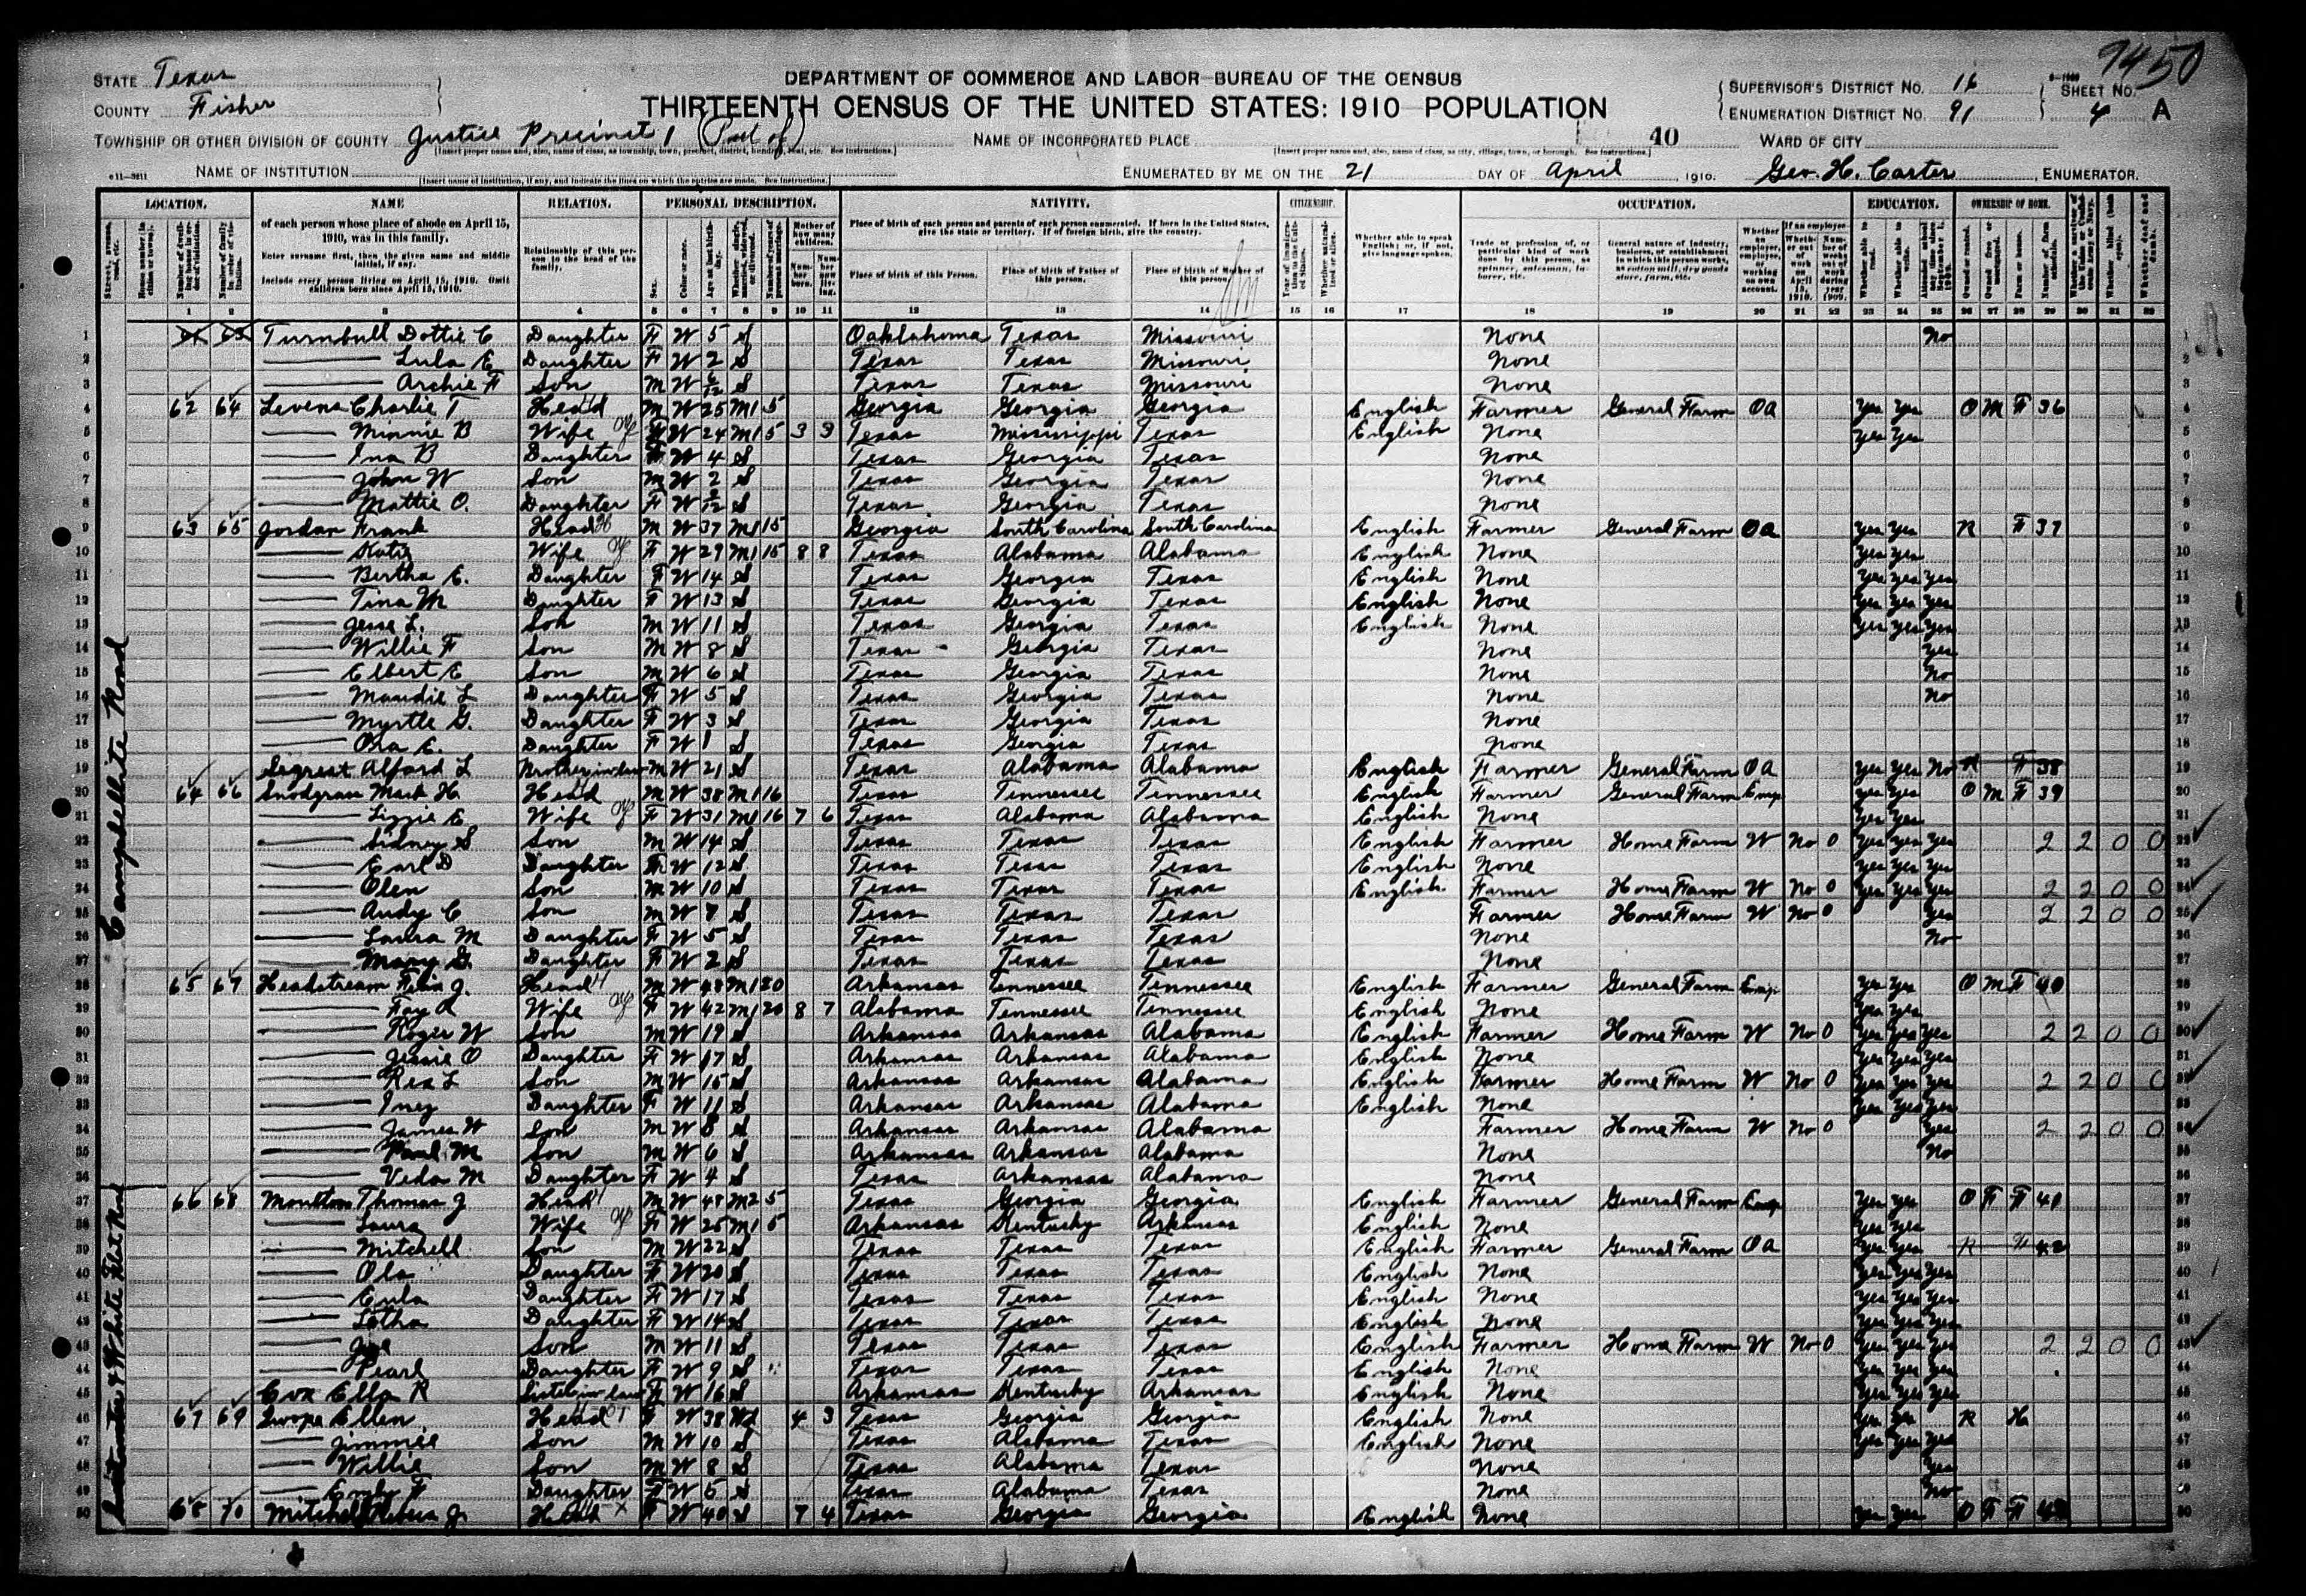 7450
STATE Texas
COUNTY Fisher
DEPARTMENT OF COMMERCE AND LABOR—BUREAU OF THE CENSUS
THIRTEENTH CENSUS OF THE UNITED STATES: 1910 POPULATION
SUPERVISOR'S DISTRICT No. 16
ENUMERATION DISTRICT No. 91
SHEET No.
4 A
TOWNSHIP OR OTHER DIVISION OF COUNTY Justice Precinct 1 (Part of)
NAME OF INCORPORATED PLACE
40
WARD OF CITY
NAME OF INSTITUTION
ENUMERATED BY ME ON THE 21 DAY OF April, 1910. Geo. H. Carter, ENUMERATOR.
LOCATION. NAME RELATION. PERSONAL DESCRIPTION. NATIVITY. CITIZENSHIP. OCCUPATION. EDUCATION. OWNERSHIP OF HOME.
of each person whose place of abode on April 15, 1910, was in this family.
Enter surname first, then the given name and middle initial, if any.
Include every person living on April 15, 1910. Omit children born since April 15, 1910.
Relationship of this person to the head of the family.
Place of birth of each person and parents of each person enumerated. If born in the United States, give the state or territory. If of foreign birth, give the country.
Place of birth of this Person. Place of birth of Father of this person. Place of birth of Mother of this person.
Whether able to speak English; or, if not, give language spoken.
1 2 3 4 5 6 7 8 9 10 11 12 13 14 15 16 17 18 19 20 21 22 23 24 25 26 27 28 29 30 31 32
Campbellite Road
1 Turnbull Dottie C Daughter F W 5 S Oaklahoma Texas Missouri None No
2 Lula E Daughter F W 2 S Texas Texas Missouri None
3 Archie F Son M W 6/12 S Texas Texas Missouri None
4 62 64 Levens Charlie T Head M W 25 M1 5 Georgia Georgia Georgia English Farmer General Farm OA Yes Yes O M F 36
5 Minnie B Wife F W 24 M1 5 3 3 Texas Mississippi Texas English None Yes Yes
6 Ina B Daughter F W 4 S Texas Georgia Texas None
7 John W Son M W 2 S Texas Georgia Texas None
8 Mattie O. Daughter F W 2/12 S Texas Georgia Texas None
9 63 65 Jordan Frank Head M W 37 M1 15 Georgia South Carolina South Carolina English Farmer General Farm OA Yes Yes R F 37
10 Katie Wife F W 29 M1 15 8 8 Texas Alabama Alabama English None Yes Yes
11 Bertha E. Daughter F W 14 S Texas Georgia Texas English None Yes Yes Yes
12 Tina M Daughter F W 13 S Texas Georgia Texas English None Yes Yes Yes
13 Jesse L. Son M W 11 S Texas Georgia Texas English None Yes Yes Yes
14 Willie F Son M W 8 S Texas Georgia Texas None Yes
15 Elbert E Son M W 6 S Texas Georgia Texas None No
16 Maudie L Daughter F W 5 S Texas Georgia Texas None No
17 Myrtle G. Daughter F W 3 S Texas Georgia Texas None
18 Ora E. Daughter F W 1 S Texas Georgia Texas None
19 Segrest Alford L Brother in law M W 21 S Texas Alabama Alabama English Farmer General Farm OA Yes Yes No R F 38
20 64 66 Snodgrass Mack H. Head M W 38 M1 16 Texas Tennessee Tennessee English Farmer General Farm Emp Yes Yes O M F 39
21 Lizzie E Wife F W 31 M1 16 7 6 Texas Alabama Alabama English None Yes Yes
22 Sidney S Son M W 14 S Texas Texas Texas English Farmer Home Farm W No 0 Yes Yes Yes 2 2 0 0
23 Earl D Daughter F W 12 S Texas Texas Texas English None Yes Yes Yes
24 Olen Son M W 10 S Texas Texas Texas English Farmer Home Farm W No 0 Yes Yes Yes 2 2 0 0
25 Andy C Son M W 7 S Texas Texas Texas Farmer Home Farm W No 0 Yes 2 2 0 0
26 Laura M Daughter F W 5 S Texas Texas Texas None No
27 Mary G. Daughter F W 2 S Texas Texas Texas None
28 65 67 Headstream J. Head M W 48 M1 20 Arkansas Tennessee Tennessee English Farmer General Farm Emp Yes Yes O M F 40
29 Fay Wife F W 42 M1 20 8 7 Alabama Tennessee Tennessee English None Yes Yes
30 Roger W Son M W 19 S Arkansas Arkansas Alabama English Farmer Home Farm W No 0 Yes Yes Yes 2 2 0 0
31 Jessie O Daughter F W 17 S Arkansas Arkansas Alabama English None Yes Yes Yes
32 Rex L Son M W 15 S Arkansas Arkansas Alabama English Farmer Home Farm W No 0 Yes Yes Yes 2 2 0 0
33 Inez Daughter F W 11 S Arkansas Arkansas Alabama English None Yes Yes Yes
34 James W Son M W 8 S Arkansas Arkansas Alabama Farmer Home Farm W No 0 Yes 2 2 0 0
35 Paul M Son M W 6 S Arkansas Arkansas Alabama None No
36 Veda M Daughter F W 4 S Texas Arkansas Alabama None
37 66 68 Moulton Thomas J Head M W 48 M2 5 Texas Georgia Georgia English Farmer General Farm Emp Yes Yes O F F 41
38 Laura Wife F W 25 M1 5 Arkansas Kentucky Arkansas English None Yes Yes
39 Mitchell Son M W 22 S Texas Texas Texas English Farmer General Farm OA Yes Yes R F 42
40 Ola Daughter F W 20 S Texas Texas Texas English None Yes Yes Yes
41 Eula Daughter F W 17 S Texas Texas Texas English None Yes Yes Yes
42 Letha Daughter F W 14 S Texas Texas Texas English None Yes Yes Yes
43 Joe Son M W 11 S Texas Texas Texas English Farmer Home Farm W No 0 Yes Yes Yes 2 2 0 0
44 Pearl Daughter F W 9 S Texas Texas Texas English None Yes Yes Yes
45 Cox Ella R Sister in law F W 16 S Arkansas Kentucky Arkansas English None Yes Yes Yes
46 67 69 Swope Ellen Head F W 38 Wd 4 3 Texas Georgia Georgia English None Yes Yes R H
47 Jimmie Son M W 10 S Texas Alabama Texas English None Yes Yes Yes
48 Willie Son M W 8 S Texas Alabama Texas None Yes
49 F Daughter F W 5 S Texas Alabama Texas None No
50 68 70 Mitchell J. Head F W 40 S 7 4 Texas Georgia Georgia English None Yes Yes O F F 43